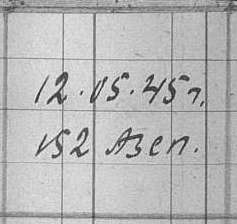 12.05.45 г.
152 Азсп.